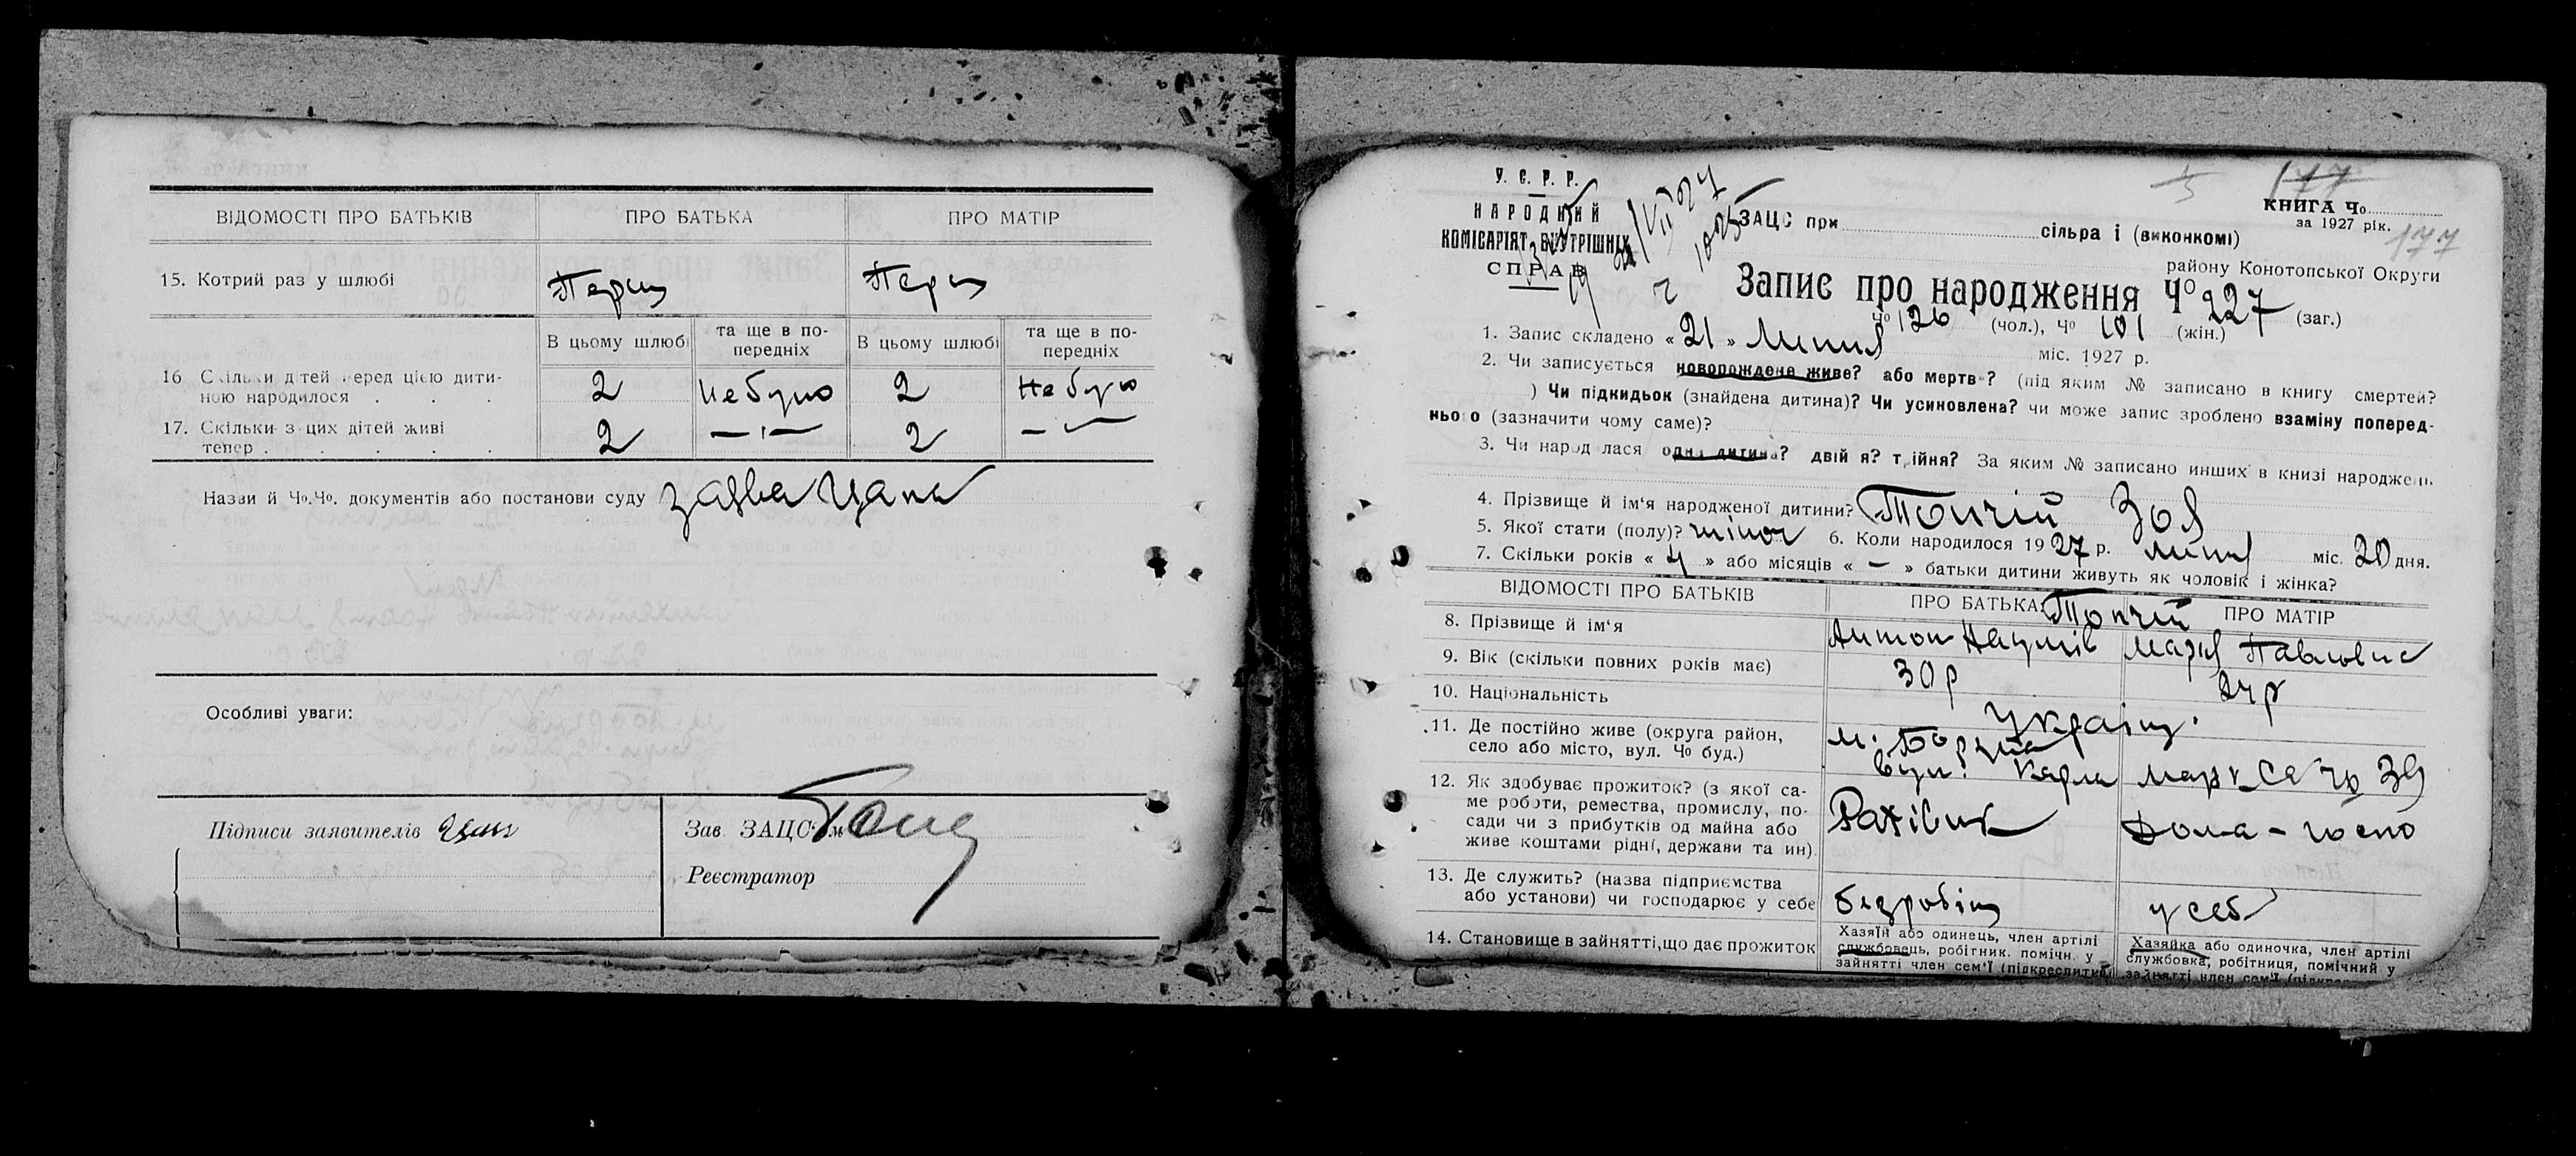 ВІДОМОСТІ ПРО БАТЬКІВ ПРО БАТЬКА ПРО МАТІР
15. Котрий раз у шлюбі Перш Перш
В цьому шлюбі та ще в по-передніх В цьому шлюбі та ще в по-передніх
16 Скільки дітей перед цією дити-
ною народилося . . . 2 не було 2 не було
17. Скільки з цих дітей живі
тепер . . . . . 2 — 2 —
Назви й Чо.Чо. документів або постанови суду заява
Особливі уваги:
Підписи заявителів
Зав. ЗАЦС'м
Реєстратор
У. С. Р. Р.
НАРОДНИЙ
КОМІСАРІЯТ ВНУТРІШНІХ
СПРАВ
177
КНИГА Чо
за 1927 рік.
177
ЗАЦС при сільра і (виконкомі)
району Конотопської Округи
Запис про народження Чо 227 (заг.)
Чо 126 (чол.), Чо 101 (жін.)
1. Запис складено « 21 » Липня міс. 1927 р.
2. Чи записується новорождене живе? або мертве? (під яким № записано в книгу смертей?
) Чи підкидьок (знайдена дитина)? Чи усиновлена? чи може запис зроблено взаміну поперед-
нього (зазначити чому саме)?
3. Чи народилася одна дитина? двійня? трійня? За яким № записано инших в книзі народжень
4. Прізвище й ім'я народженої дитини? Топчій Зоя
5. Якої стати (полу)? жіноч 6. Коли народилося 1927 р. липня міс. 20 дня.
7. Скільки років « 4 » або місяців « — » батьки дитини живуть як чоловік і жінка?
ВІДОМОСТІ ПРО БАТЬКІВ ПРО БАТЬКА Топчій ПРО МАТІР
8. Прізвище й ім'я Антон Наумів Марія Павловна
9. Вік (скільки повних років має) 30 р 24 р
10. Національність Україн.
11. Де постійно живе (округа район,
село або місто, вул. Чо буд.) м. Борзна
вул. Карла Маркса чо 39
12. Як здобуває прожиток? (з якої са-
ме роботи, ремества, промислу, по-
сади чи з прибутків од майна або
живе коштами рідні, держави та ин). Рахівник Дома-госпо
13. Де служить? (назва підприємства
або установи) чи господарює у себе безробітн у себе
14. Становище в зайнятті, що дає прожиток
Хазяїн або одинець, член артілі
службовець, робітник. помічн. у
зайнятті член сем'ї (підкреслити)
Хазяйка або одиночка, член артілі
службовка, робітниця, помічний у
зайнятті член сем'ї